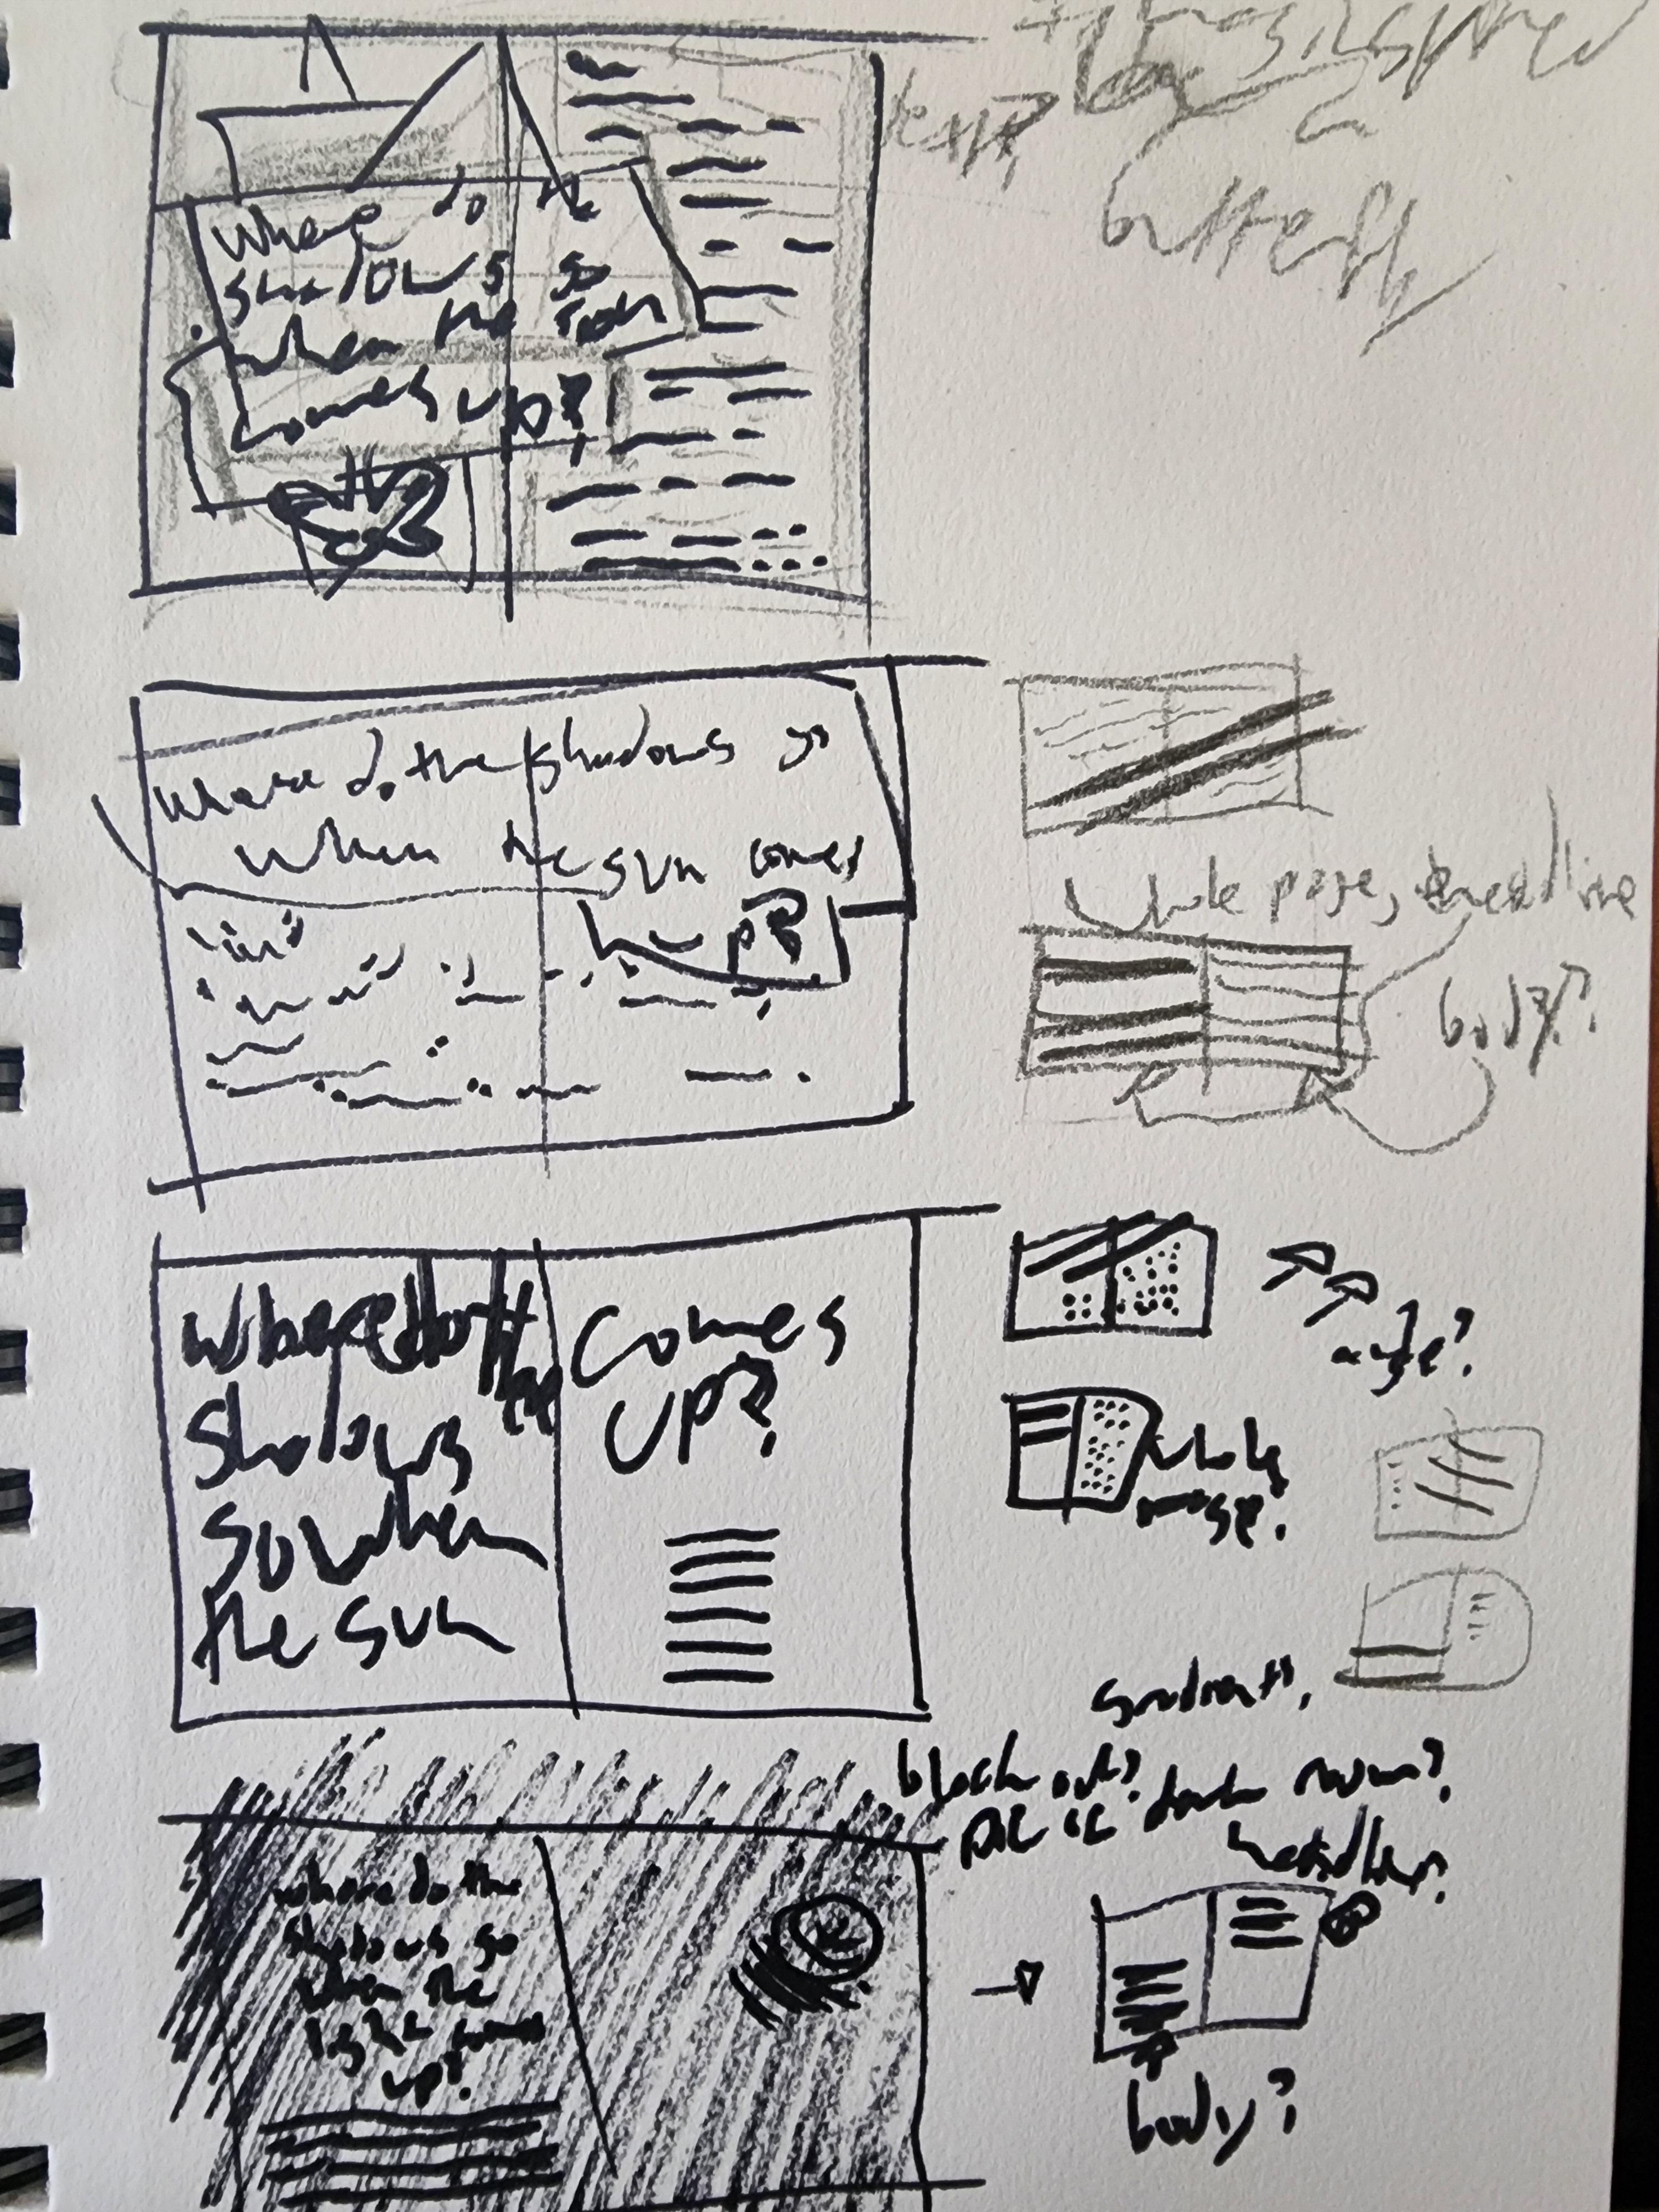 Where do the
shadows go
when the sun
comes up?
butterfly
Where do the shadows go
when the sun comes
up?
whole page, headline
body??
Where do the
Shadows
go when
the sun
comes
up?
angle?
whole
page?
gradient?,
block out?
dark room?
where do the
shadows go
when the
light comes
up?
headline?
body?